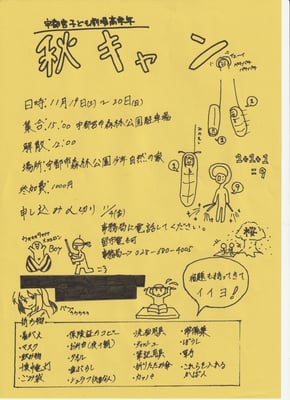 宇都宮子ども劇場高青年
秋キャン
日時:11月19日(土)~20日(日)
集合:15:00 宇都宮市森林公園駐車場
解散:12:00
場所:宇都宮市森林公園少年自然の家
参加費:1000円
申し込み〆切り 11/4(金)
事務局に電話してください。
留守電も可
事務局→028-680-4005
2+2+2
=9
桜
宿題も持ってきて
イイヨ!
Boy
持ち物
マスク
飲み物
懐中電灯
保険証のコピー
タオル
洗面用具
ティッシュ
筆記用具
折りたたみ傘
カッパ
ぼうし
軍手
これらを入れる
かばん